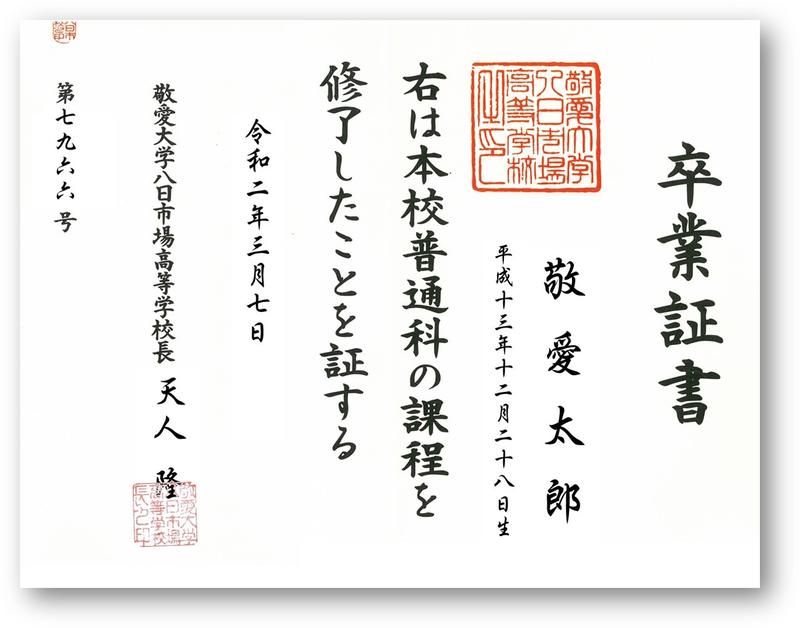 卒業証書
敬愛太郎
平成十三年十二月二十八日生
敬愛大学八日市場高等学校之印
右は本校普通科の課程を
修了したことを証する
令和二年三月七日
敬愛大学八日市場高等学校長 天人 隆
敬愛大学八日市場高等学校長之印
第七九六六号